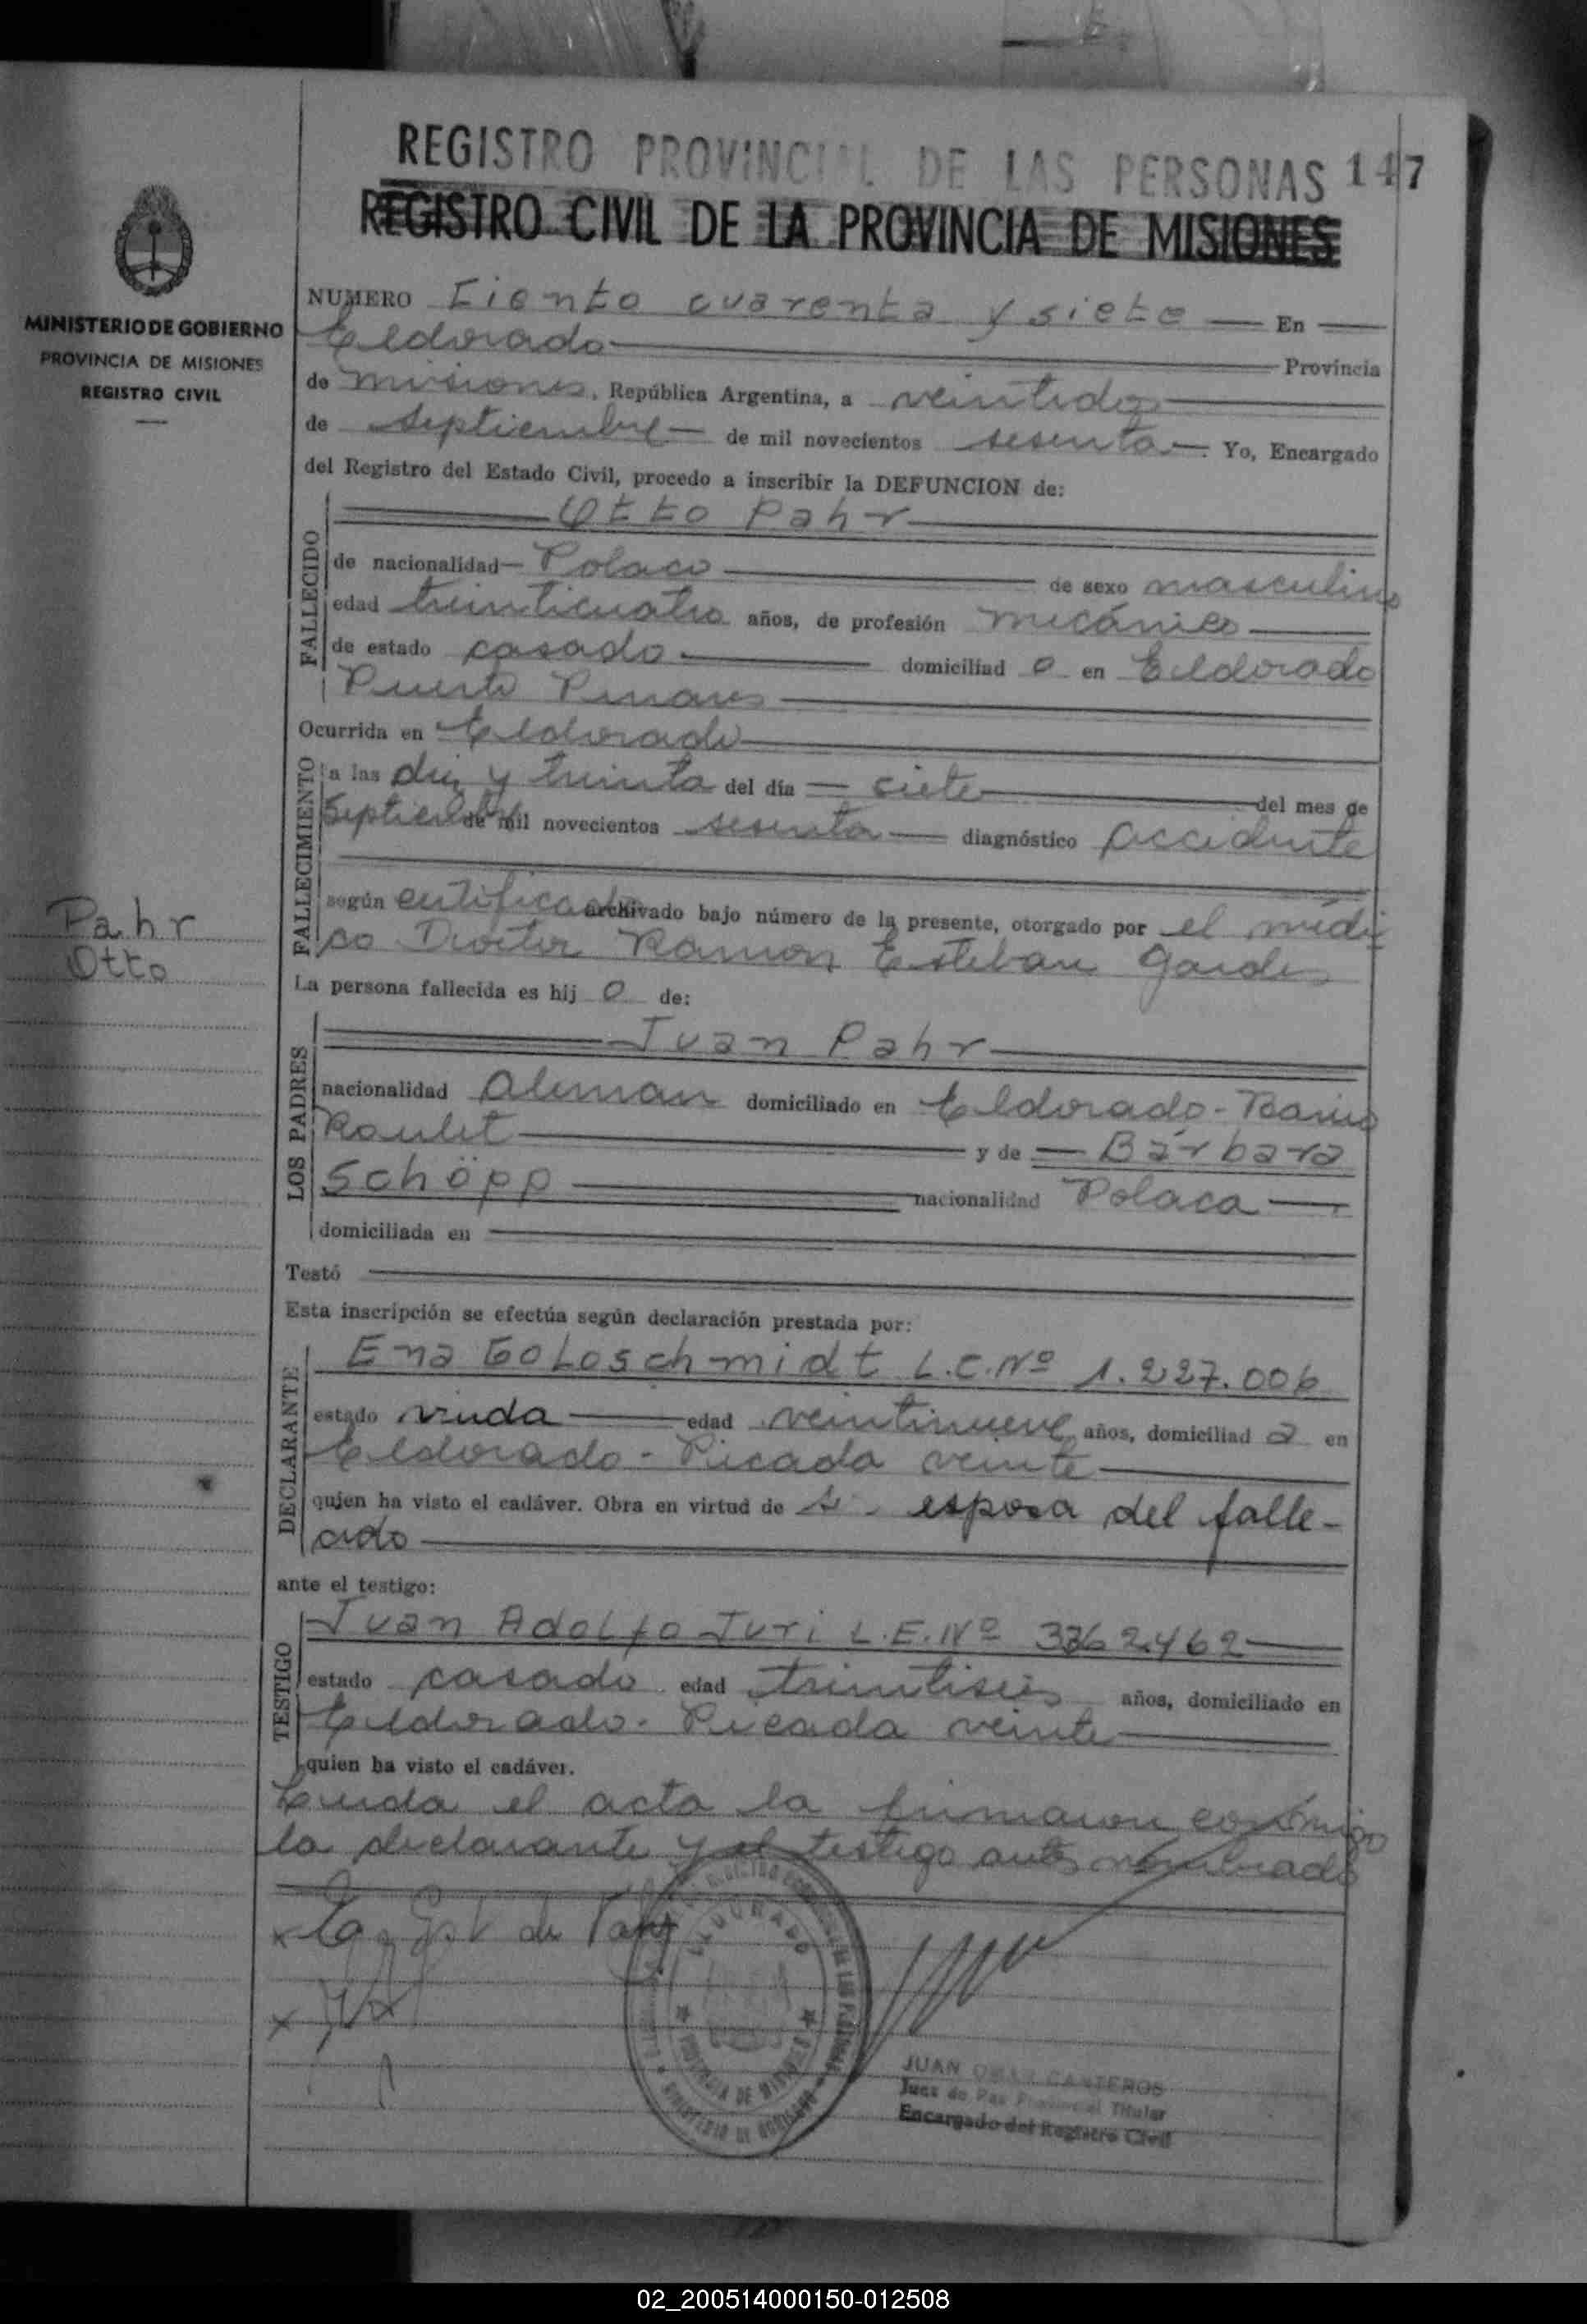 REGISTRO PROVINCIAL DE LAS PERSONAS 147
REGISTRO CIVIL DE LA PROVINCIA DE MISIONES
MINISTERIO DE GOBIERNO
PROVINCIA DE MISIONES
REGISTRO CIVIL
NUMERO Ciento cuarenta y siete En
Eldorado Provincia
de Misiones, República Argentina, a veintidos
de septiembre de mil novecientos sesenta Yo, Encargado
del Registro del Estado Civil, procedo a inscribir la DEFUNCION de:
FALLECIDO
Otto Pahr
de nacionalidad Polaco de sexo masculino
edad treinticuatro años, de profesión mecánico
de estado casado domiciliad o en Eldorado
Puerto Pinares
Ocurrida en Eldorado
FALLECIMIENTO
a las diez y treinta del día siete del mes de
Septiembre de mil novecientos sesenta diagnóstico accidente
según certificado archivado bajo número de la presente, otorgado por el médi
co Doctor Ramon Esteban
Pahr
Otto
La persona fallecida es hij o de:
LOS PADRES
Juan Pahr
nacionalidad Aleman domiciliado en Eldorado - Barrio
Roulet y de Bárbara
Schöpp nacionalidad Polaca
domiciliada en
Testó
Esta inscripción se efectúa según declaración prestada por:
DECLARANTE
Ena GoLdschmidt L.C.Nº 1.227.006
estado viuda edad veintinueve años, domiciliad a en
Eldorado - Picada veinte
quien ha visto el cadáver. Obra en virtud de esposa del falle-
cido
ante el testigo:
TESTIGO
Juan Adolfo Juri L.E.Nº
estado casado edad treintiseis años, domiciliado en
Eldorado - Picada veinte
quien ha visto el cadáver.
Leida el acta la firmaron conmigo
la declarante y el testigo antes nombrado
ELDORADO
PROVINCIA DE MISIONES
MINISTERIO DE GOBIERNO
JUAN OMAR CANTEROS
Juez de Paz Provincial Titular
Encargado del Registro Civil
02_200514000150-012508